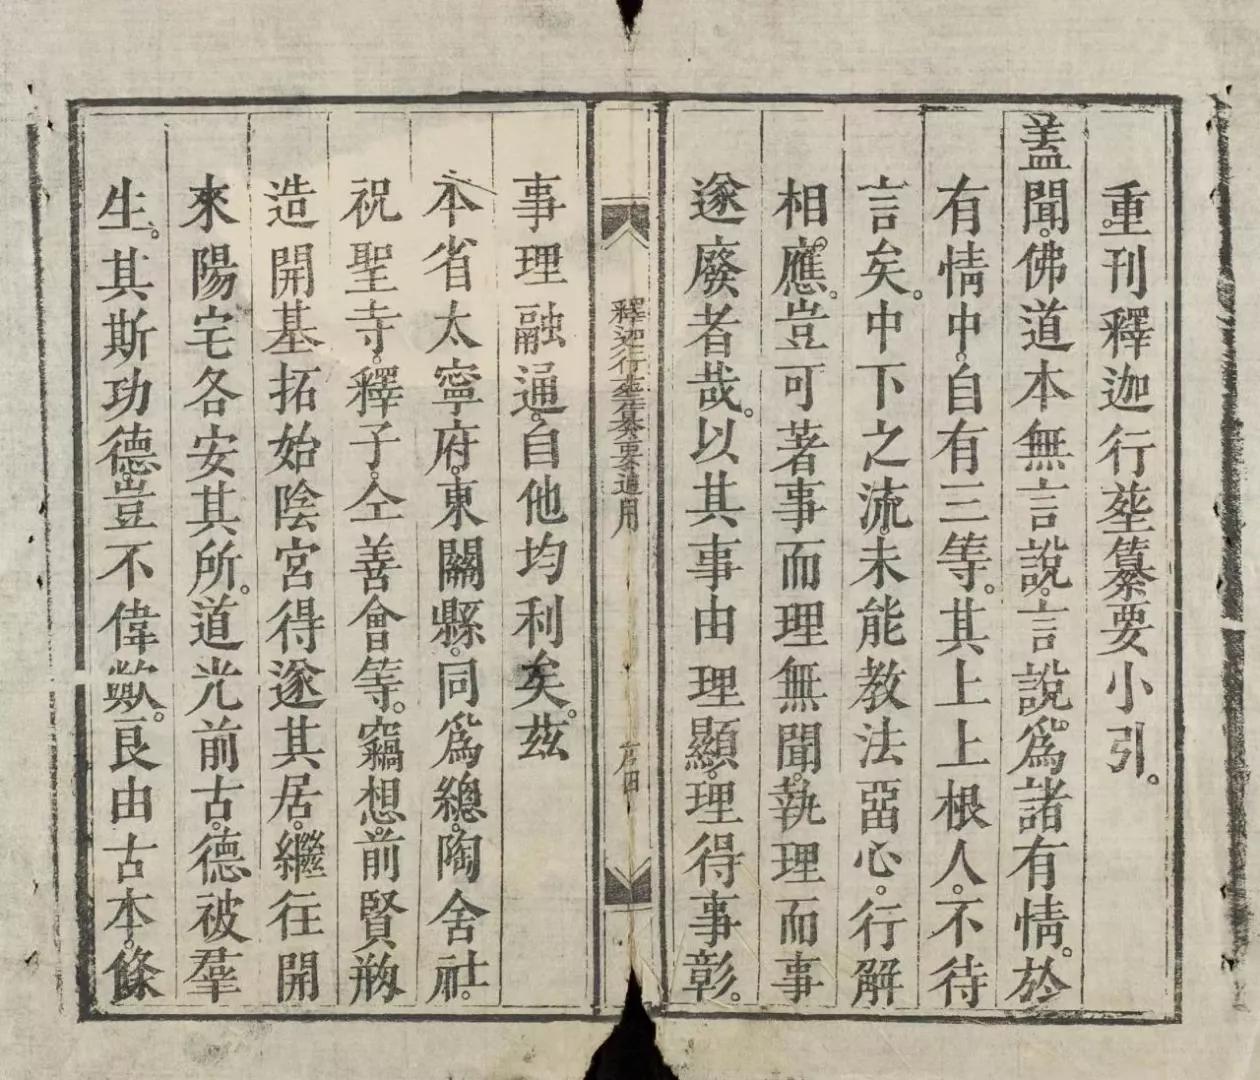 重刊釋迦行塟纂要小引。
盖聞。佛道本無言說。言說。爲諸有情。於
有情中。自有三等。其上上根人。不待
言矣。中下之流。未能教法㽞心。行解
相應。豈可著事而理無聞。執理而事
遂廢者哉。以其事由理顯。理得事彰。
釋迦行塟纂要通用
序四
事理融通。自他均利矣。茲
本省太寧府。東關縣。同爲總。陶舍社。
祝聖寺。釋子。仝善會等。竊想前賢剏
造開基拓始陰宮得遂其居。繼往開
來陽宅各安其所。道光前古。德被羣
生。其斯功德。豈不偉歟。良由古本。條